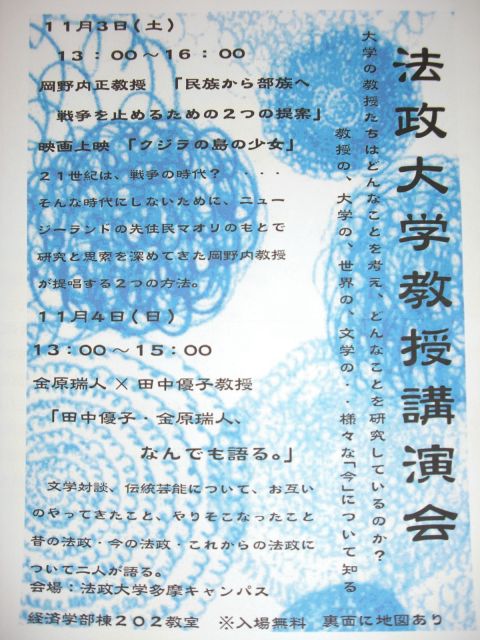 法政大学教授講演会
大学の教授たちはどんなことを考え、どんなことを研究しているのか?
教授の、大学の、世界の、文学の・・様々な「今」について知る
11月3日(土)
13:00~16:00
岡野内正教授 「民族から部族へ
戦争を止めるための2つの提案」
映画上映 「クジラの島の少女」
21世紀は、戦争の時代? ・・・
そんな時代にしないために、ニュー
ジーランドの先住民マオリのもとで
研究と思索を深めてきた岡野内教授
が提唱する2つの方法。
11月4日(日)
13:00~15:00
金原瑞人×田中優子教授
「田中優子・金原瑞人、
なんでも語る。」
文学対談、伝統芸能について、お互い
のやってきたこと、やりそこなったこと
昔の法政・今の法政・これからの法政に
ついて二人が語る。
会場:法政大学多摩キャンパス
経済学部棟202教室 ※入場無料 裏面に地図あり